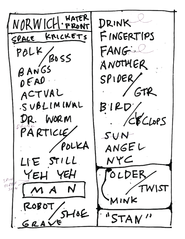 NORWICH WATER FRONT
SPACE KRICKETS
POLK / BOSS
BANGS
DEAD
ACTUAL
SUBLIMINAL
DR. WORM
PARTICLE / POLKA
LIE STILL
YEH YEH
MAN
ROBOT / SHOE
GRAVE
DRINK
FINGERTIPS
FANG
ANOTHER
SPIDER / GTR
BIRD / CYCLOPS
SUN
ANGEL
NYC
OLDER / TWIST
MINK
"STAN"